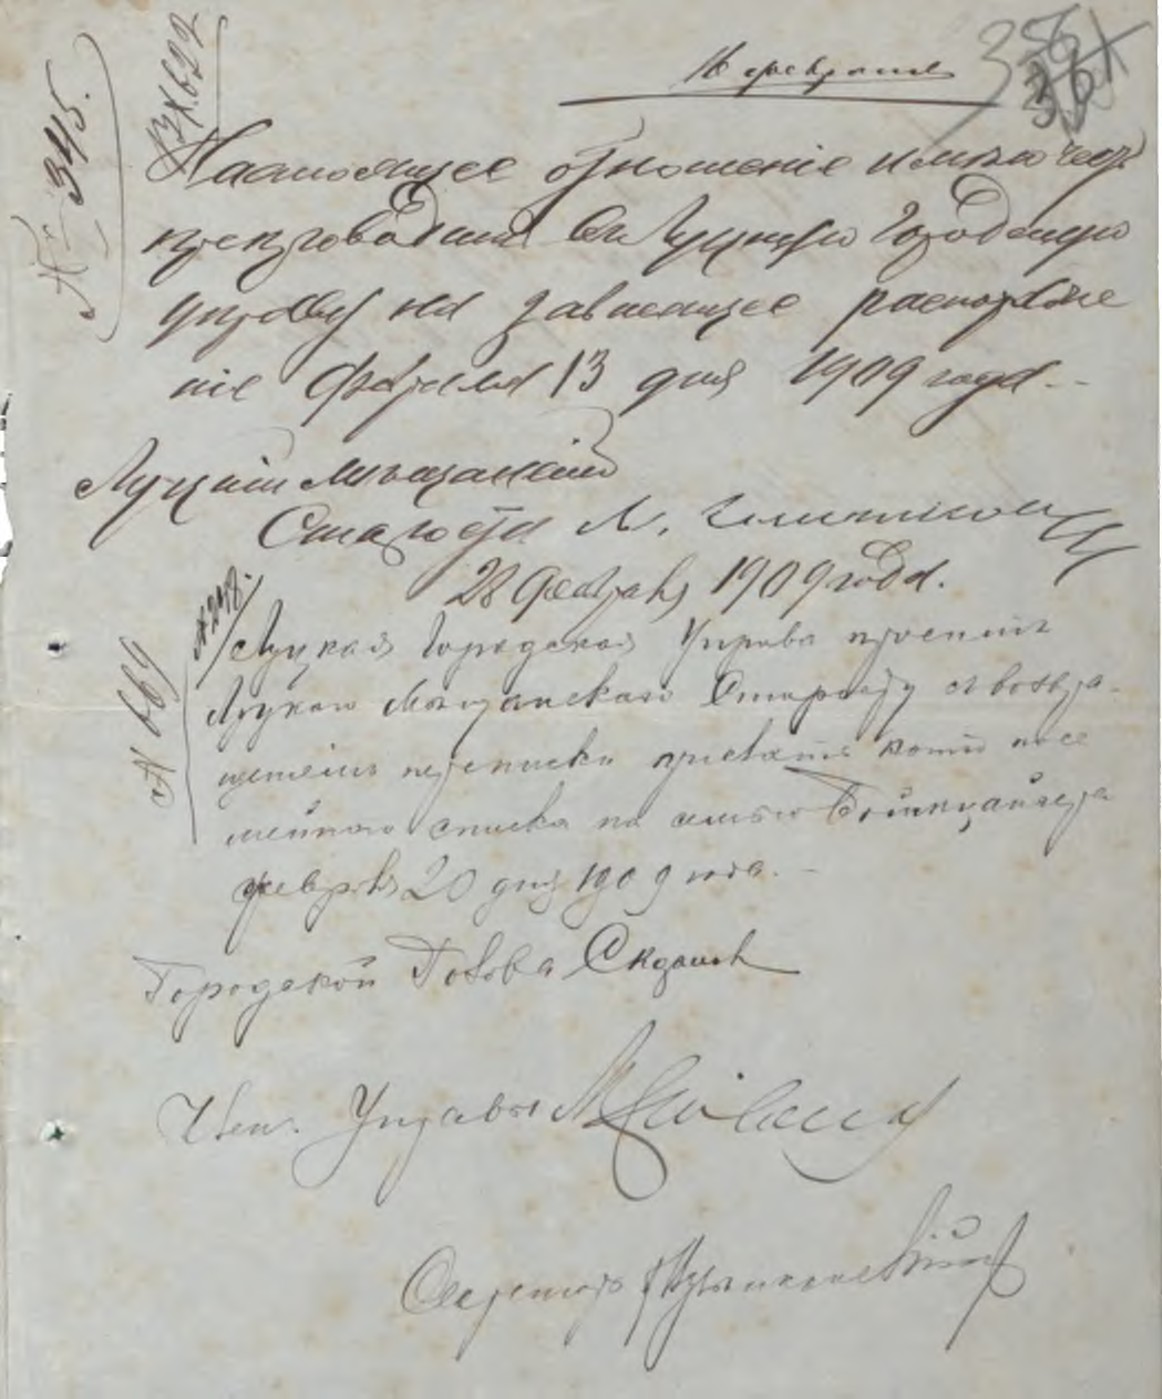 16 февраля
№ 345.
Настоящее отношеніе имѣю честь
препроводить въ Луцкую Городскую
управу на зависящее распоряже
ніе Февраля 13 дня 1909 года.
Луцкій Мѣщанскій
Староста
28 Февраля 1909 года.
№ 669
Луцкая Городская Управа проситъ
Луцкаго Мѣщанскаго Старосту съ возвра-
щеніемъ переписки прислать копію посе
мейнаго списка на имя
февраля 20 дня 1909 года.
Городской Голова
Член. Управы
Секретарь